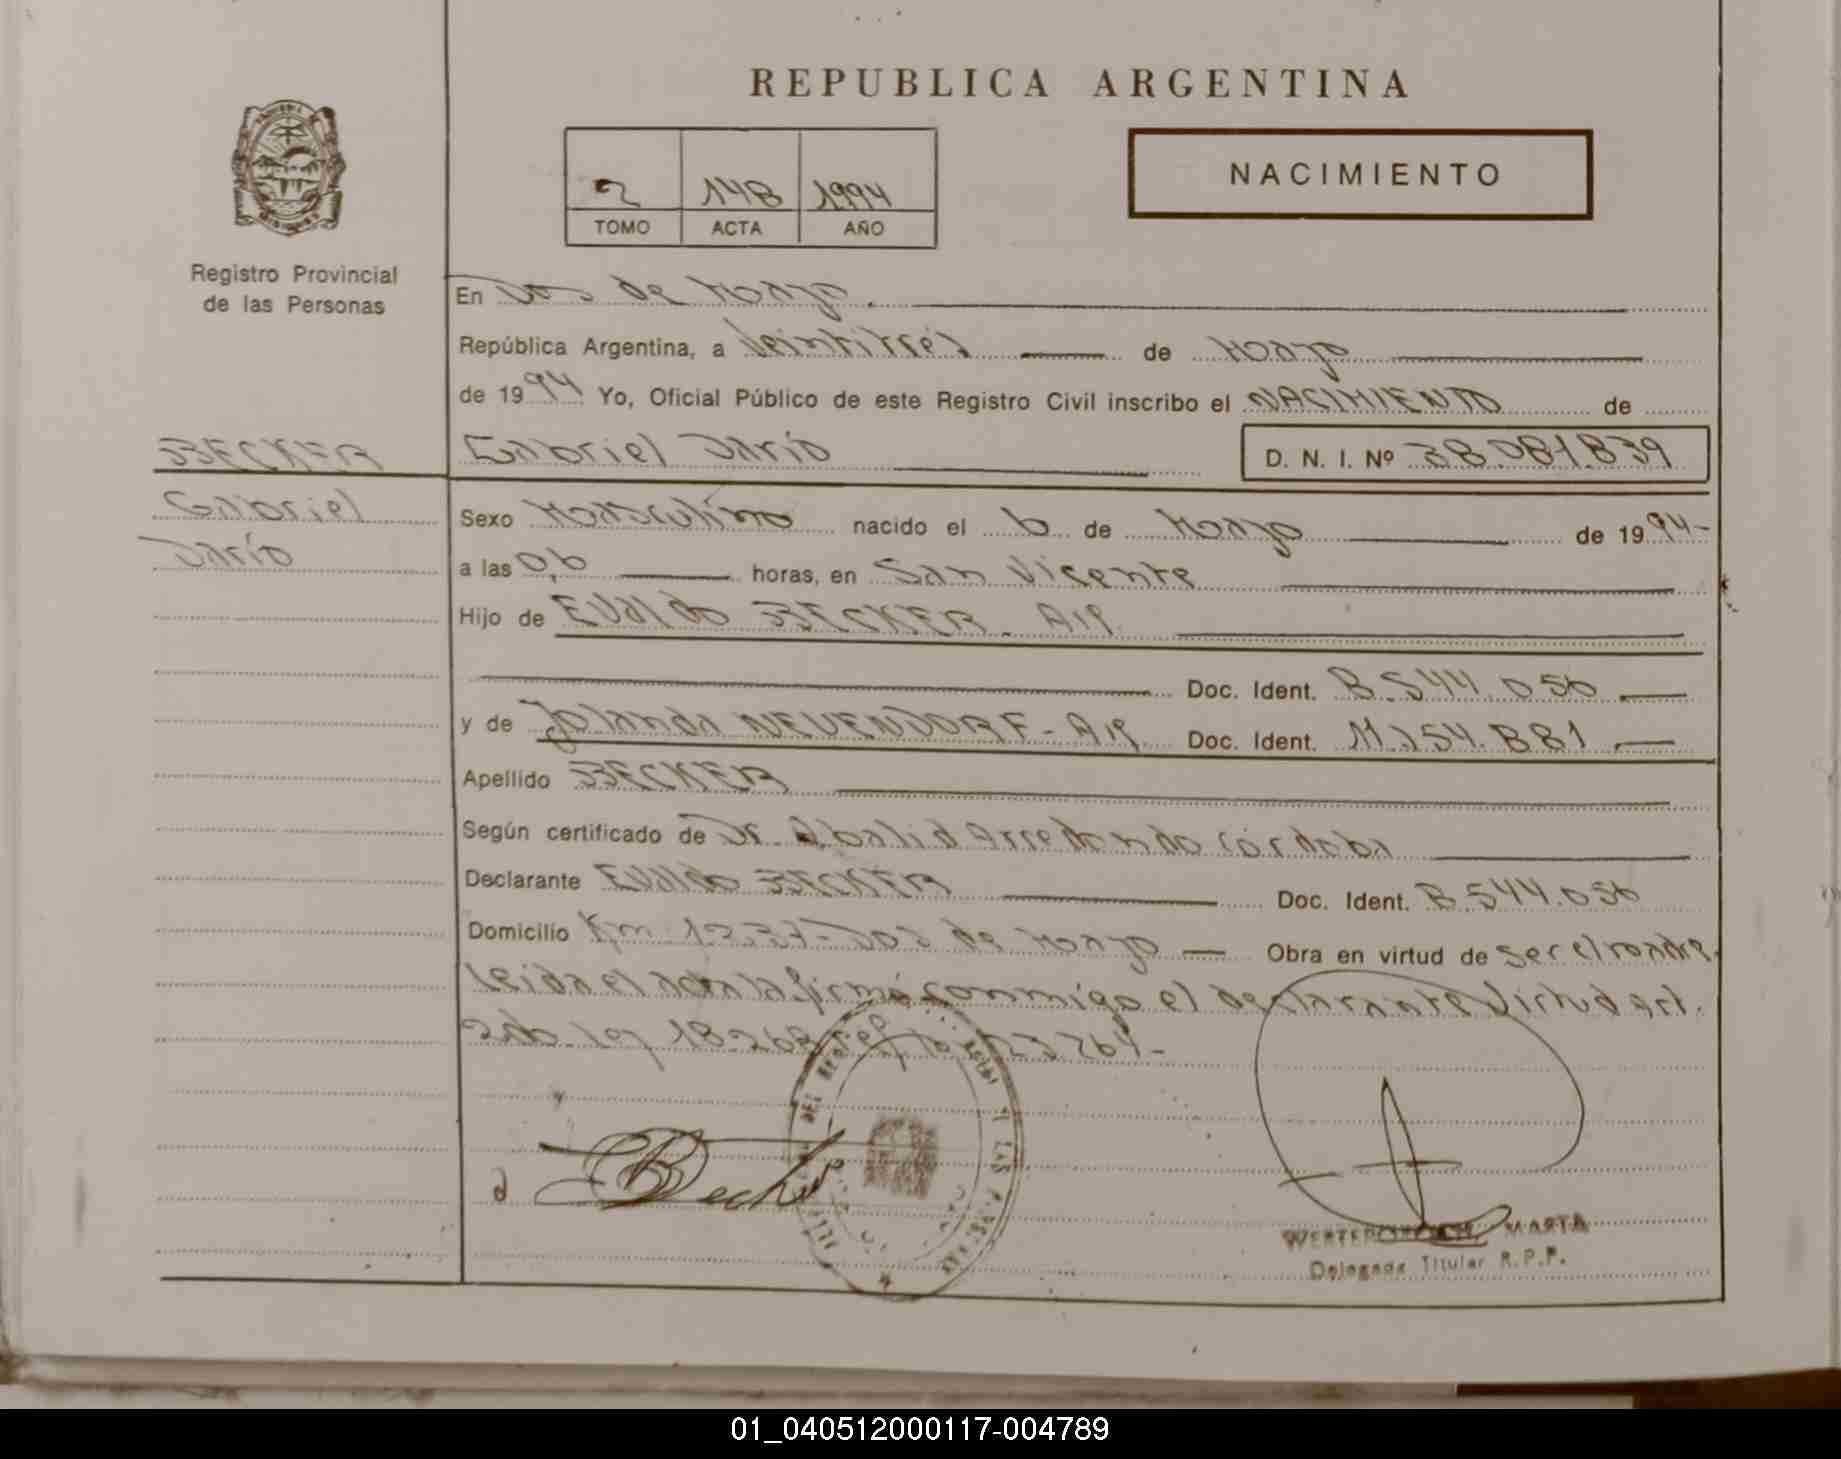 REPUBLICA ARGENTINA
NACIMIENTO
2 148 1994
TOMO ACTA AÑO
Registro Provincial
de las Personas
En Dos de Mayo.
República Argentina, a Veintitrés de Mayo
de 1994 Yo, Oficial Público de este Registro Civil inscribo el NACIMIENTO de
BECKER
Gabriel Darío D. N. I. Nº 38.081.839
Gabriel
Darío
Sexo Masculino nacido el 6 de Mayo de 1994-
a las 0,6 horas, en San Vicente
Hijo de Evaldo BECKER - Arg.
Doc. Ident. 8.544.056
y de Jolanda NEUENDORF - Arg. Doc. Ident. 11.154.881
Apellido BECKER
Según certificado de Dr. Arredondo Córdoba
Declarante Evaldo BECKER Doc. Ident. 8.544.056
Domicilio Km 1237-Dos de Mayo Obra en virtud de ser el padre.
Leída el acta la firmó conmigo el declarante Virtud art.
2do ley 18.268 23264-
Becker
MARTA
Delegada Titular R.P.P.
01_040512000117-004789